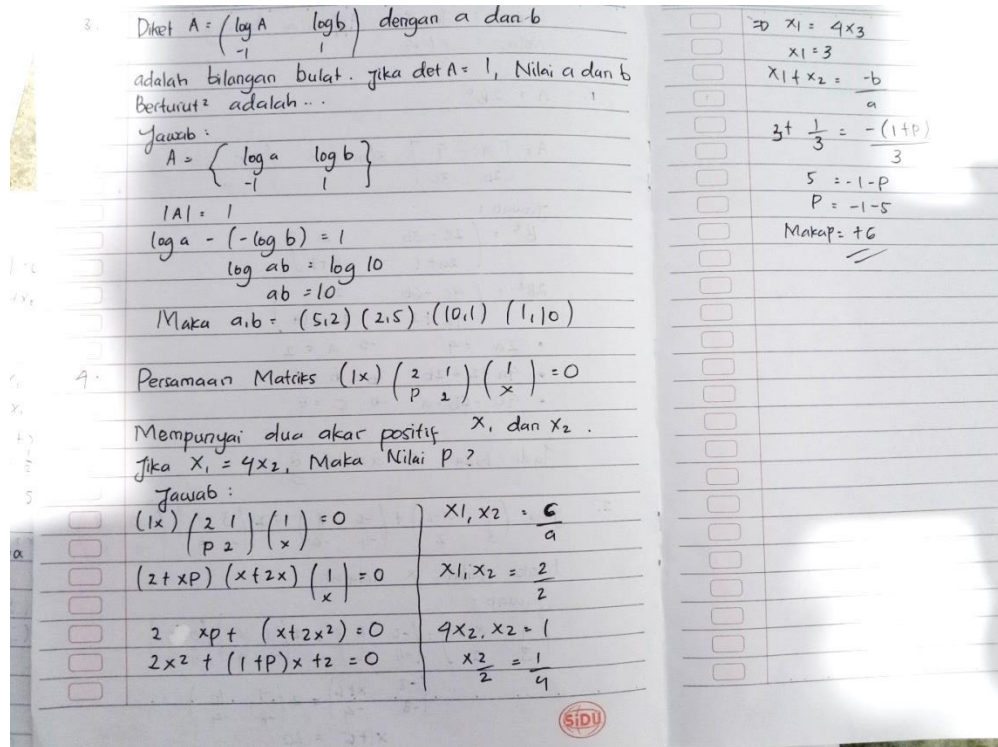 3. Diket A = (log A logb) dengan a dan b
-1 1
adalah bilangan bulat. Jika det A = 1, Nilai a dan b
Berturut² adalah...
Jawab :
A = { log a log b }
-1 1
|A| = 1
log a - (-log b) = 1
log ab = log 10
ab = 10
Maka a,b = (5,2) (2,5) (10,1) (1,10)
4. Persamaan Matriks (1x) (2 1) (1) = 0
P 2 x
Mempunyai dua akar positif x₁ dan x₂.
Jika x₁ = 4x₂, Maka Nilai P ?
Jawab :
(1x) (2 1) (1) = 0
P 2 x
(2+xP) (x+2x) (1) = 0
x
2 xp + (x+2x²) = 0
2x² + (1+P)x +2 = 0
x1, x2 = c
a
x1, x2 = 2
2
4x2. x2 = 1
x2 = 1
2 4
=> x1 = 4x3
x1 = 3
x1 + x2 = -b
a
3+ 1/3 = -(1+P)
3
5 = -1-P
P = -1-5
Makap = +6
SiDU